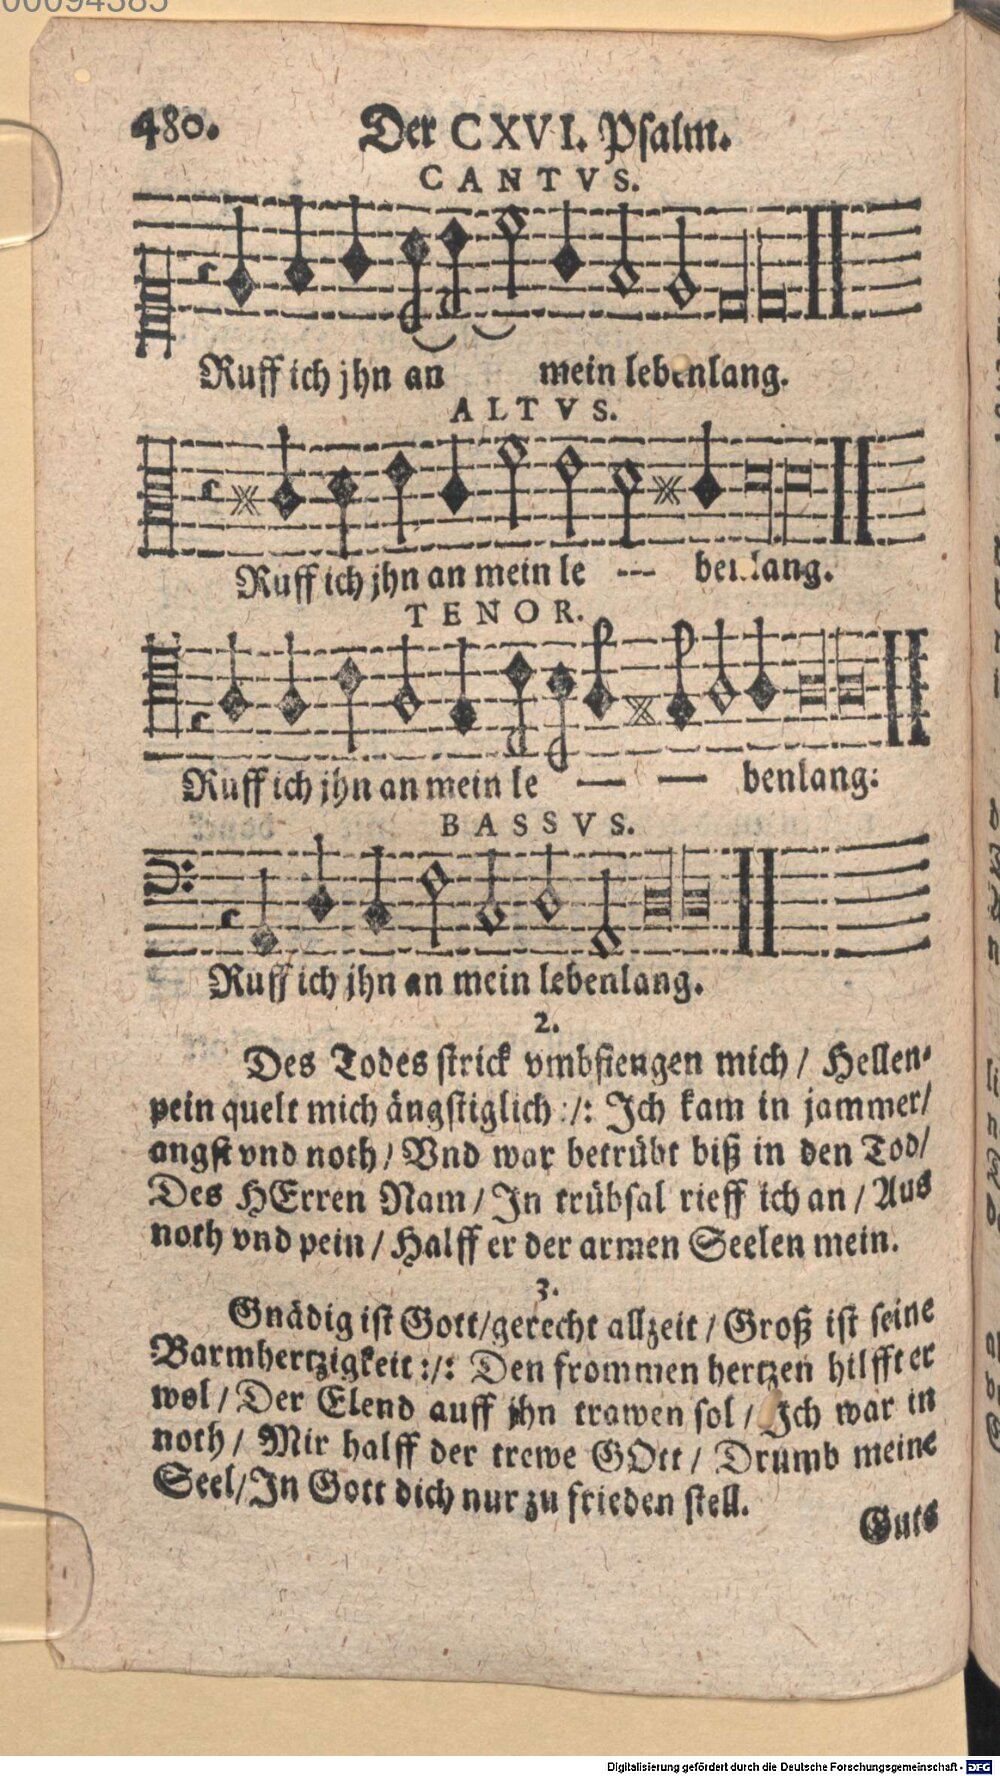 00094385
480. Der CXVI. Psalm.
CANTVS.
Ruff ich jhn an mein lebenlang.
ALTVS.
Ruff ich jhn an mein le --- benlang.
TENOR.
Ruff ich jhn an mein le — — benlang:
BASSVS.
Ruff ich jhn an mein lebenlang.
2.
Des Todes strick vmbfiengen mich / Hellen-
pein quelt mich ängstiglich :/: Ich kam in jammer/
angst vnd noth / Vnd war betrübt biß in den Tod/
Des HErren Nam / In trübsal rieff ich an / Aus
noth vnd pein / Halff er der armen Seelen mein.
3.
Gnädig ist Gott/gerecht allzeit / Groß ist seine
Barmhertzigkeit :/: Den frommen hertzen hilfft er
wol / Der Elend auff jhn trawen sol / Ich war in
noth / Mir halff der trewe GOtt / Drumb meine
Seel/In Gott dich nur zu frieden stell.
Guts
Digitalisierung gefördert durch die Deutsche Forschungsgemeinschaft - DFG